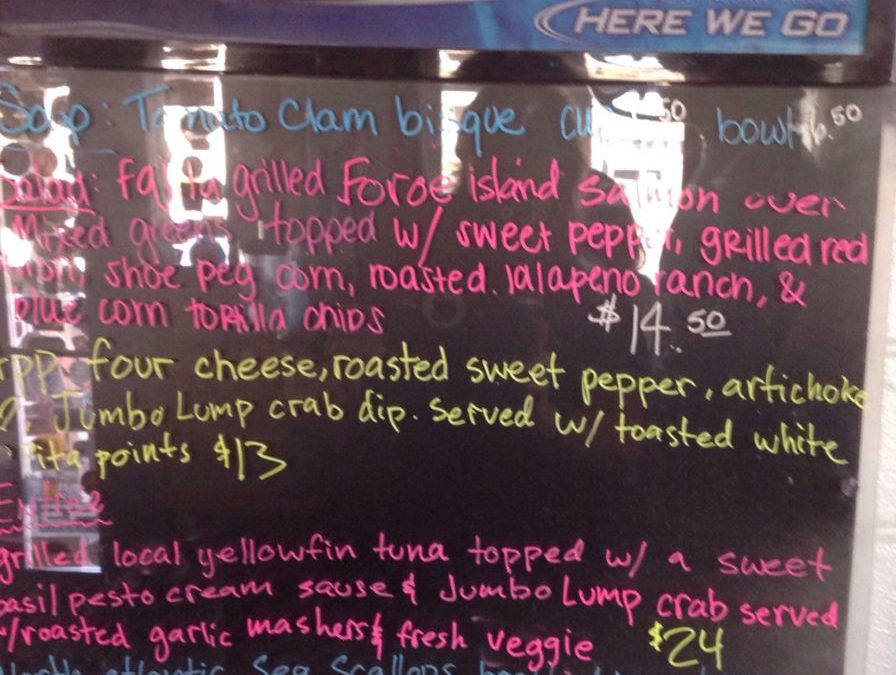 HERE WE GO
Soup: Tomato Clam bisque cup .50 bowl 6.50
Salad: fajita grilled Faroe island salmon over
Mixed greens topped w/ sweet pepper, grilled red
shoe peg corn, roasted jalapeno ranch, &
blue corn tortilla chips $14.50
four cheese, roasted sweet pepper, artichoke
Jumbo Lump crab dip. Served w/ toasted white
Pita points $13
Entree
grilled local yellowfin tuna topped w/ a sweet
basil pesto cream sause & Jumbo Lump crab served
w/roasted garlic mashers & fresh veggie $24
North atlantic Sea Scallops